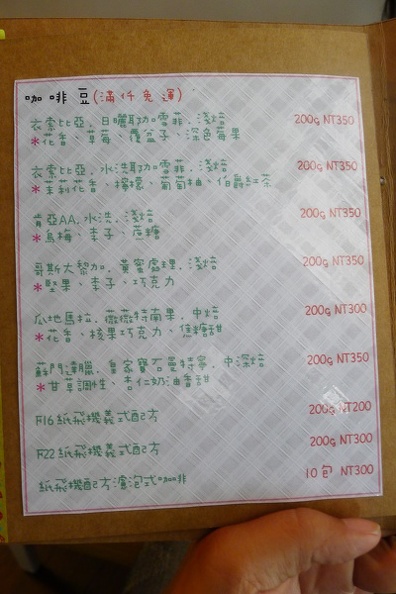 咖啡豆(滿仟免運)
衣索比亞．日曬耶加雪菲．淺焙 200g NT350
*花香、草莓、覆盆子、深色莓果
衣索比亞．水洗耶加雪菲．淺焙 200g NT350
*茉莉花香、檸檬、葡萄柚、伯爵紅茶
肯亞AA．水洗．淺焙 200g NT350
*烏梅、李子、蔗糖
哥斯大黎加．黃蜜處理．淺焙 200g NT350
*堅果、李子、巧克力
瓜地馬拉．薇薇特南果．中焙 200g NT300
*花香、核果巧克力、焦糖甜
蘇門達臘．皇家寶石曼特寧．中深焙 200g NT350
*甘草調性、杏仁奶油香甜
F16紙飛機義式配方 200g NT200
F22紙飛機義式配方 200g NT300
紙飛機配方濾泡式咖啡 10包 NT300